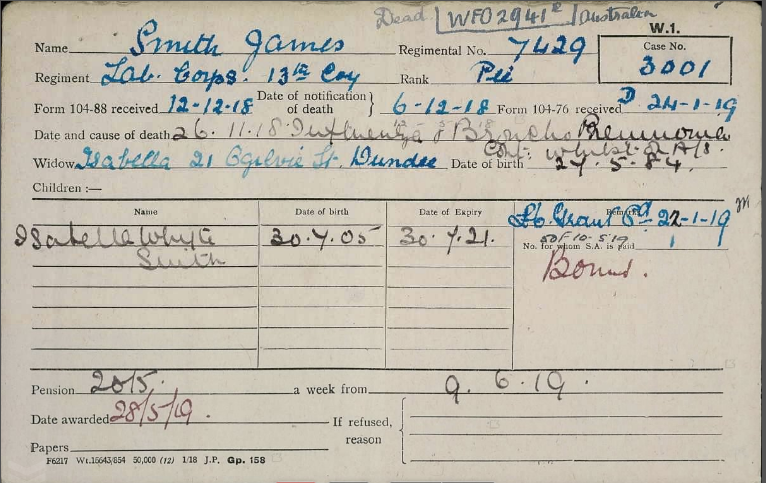 Dead WFO 2941E Australia
W.1.
Name Smith James Regimental No. 7429 Case No. 3001
Regiment Lab. Corps. 13th Coy Rank Pte
Form 104-88 received 12-12-18 Date of notification of death } 6-12-18 Form 104-76 received D 24-1-19
Date and cause of death 26.11.18 Influenza & Broncho Pneumonia
Cont. whilst on A/S.
Widow Isabella 21 Ogilvie St. Dundee Date of birth 27.5.84.
Children :—
Name Date of birth Date of Expiry Remarks
Grant Pd 22-1-19
Isabella Whyte 30.7.05 30.7.21. No. for whom S.A. is paid 1
Smith
Bonus.
Pension 20/5. a week from 9.6.19.
Date awarded 28/5/19. If refused, reason
Papers
F6217 Wt.16643/854 50,000 (12) 1/18 J.P. Gp. 158